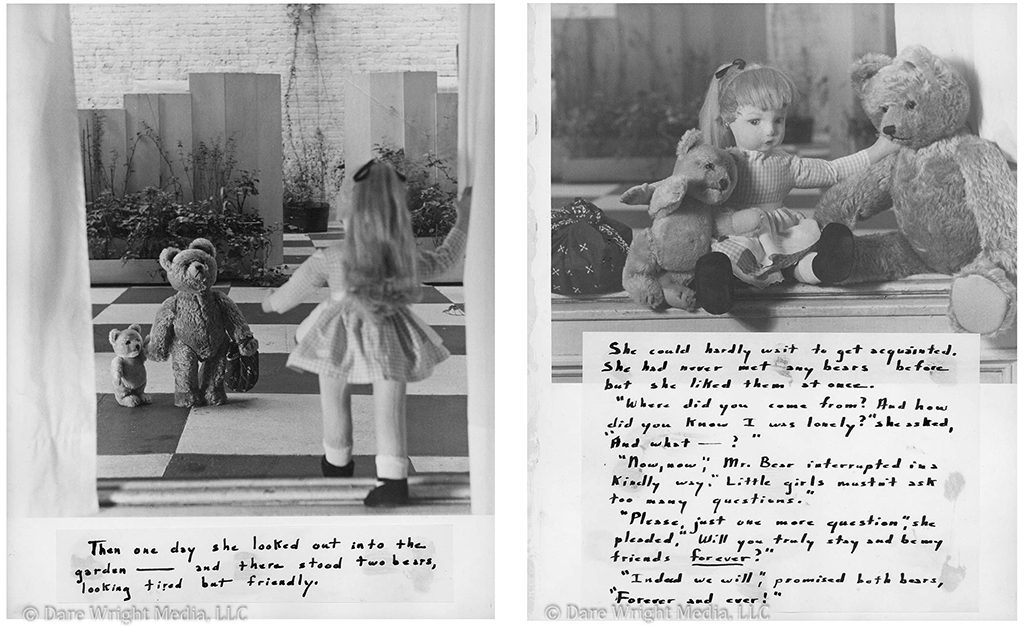 Then one day she looked out into the
garden — and there stood two bears,
looking tired but friendly.
© Dare Wright Media, LLC
She could hardly wait to get acquainted.
She had never met any bears before
but she liked them at once.
"Where did you come from? And how
did you know I was lonely?" she asked,
"And what — ? "
"Now, now", Mr. Bear interrupted in a
kindly way." Little girls mustn't ask
too many questions."
"Please, just one more question", she
pleaded," Will you truly stay and be my
friends forever?"
"Indeed we will", promised both bears,
"Forever and ever!"
© Dare Wright Media, LLC